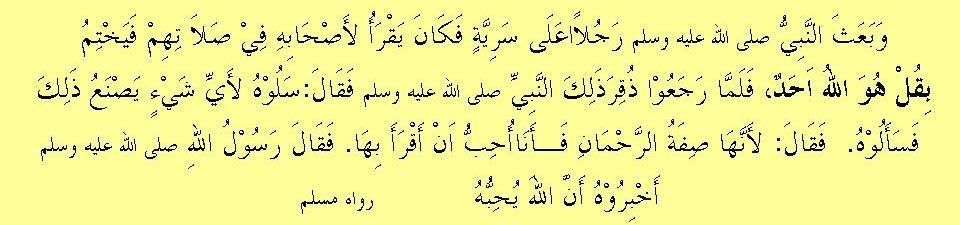 وَبَعَثَ النَّبِيُّ صلى الله عليه وسلم رَجُلاًاعَلَى سَرِيَّةٍ فَكَانَ يَقْرَأُ لأَصْحَابِهِ فِيْ صَلاَ تِهِمْ فَيَخْتِمُ
بِقُلْ هُوَ اللهُ اَحَدٌ، فَلَمَّا رَجَعُوْا ذُقِرَذَلِكَ النَّبِيِّ صلى الله عليه وسلم فَقَالَ:سَلُوْهُ لأَيِّ شَيْءٍ يَصْنَعُ ذَلِكَ
فَسَأَلُوْهُ. فَقَالَ: لأَنَّهَا صِفَةُ الرَّحْمَانِ فَــأَنَاأُحِبُّ اَنْ أَقْرَأَ بِهَا. فَقَالَ رَسُوْلُ اللهِ صلى الله عليه وسلم
أَخْبِرُوْهُ أَنَّ اللهَ يُحِبُّهُ رواه مسلم